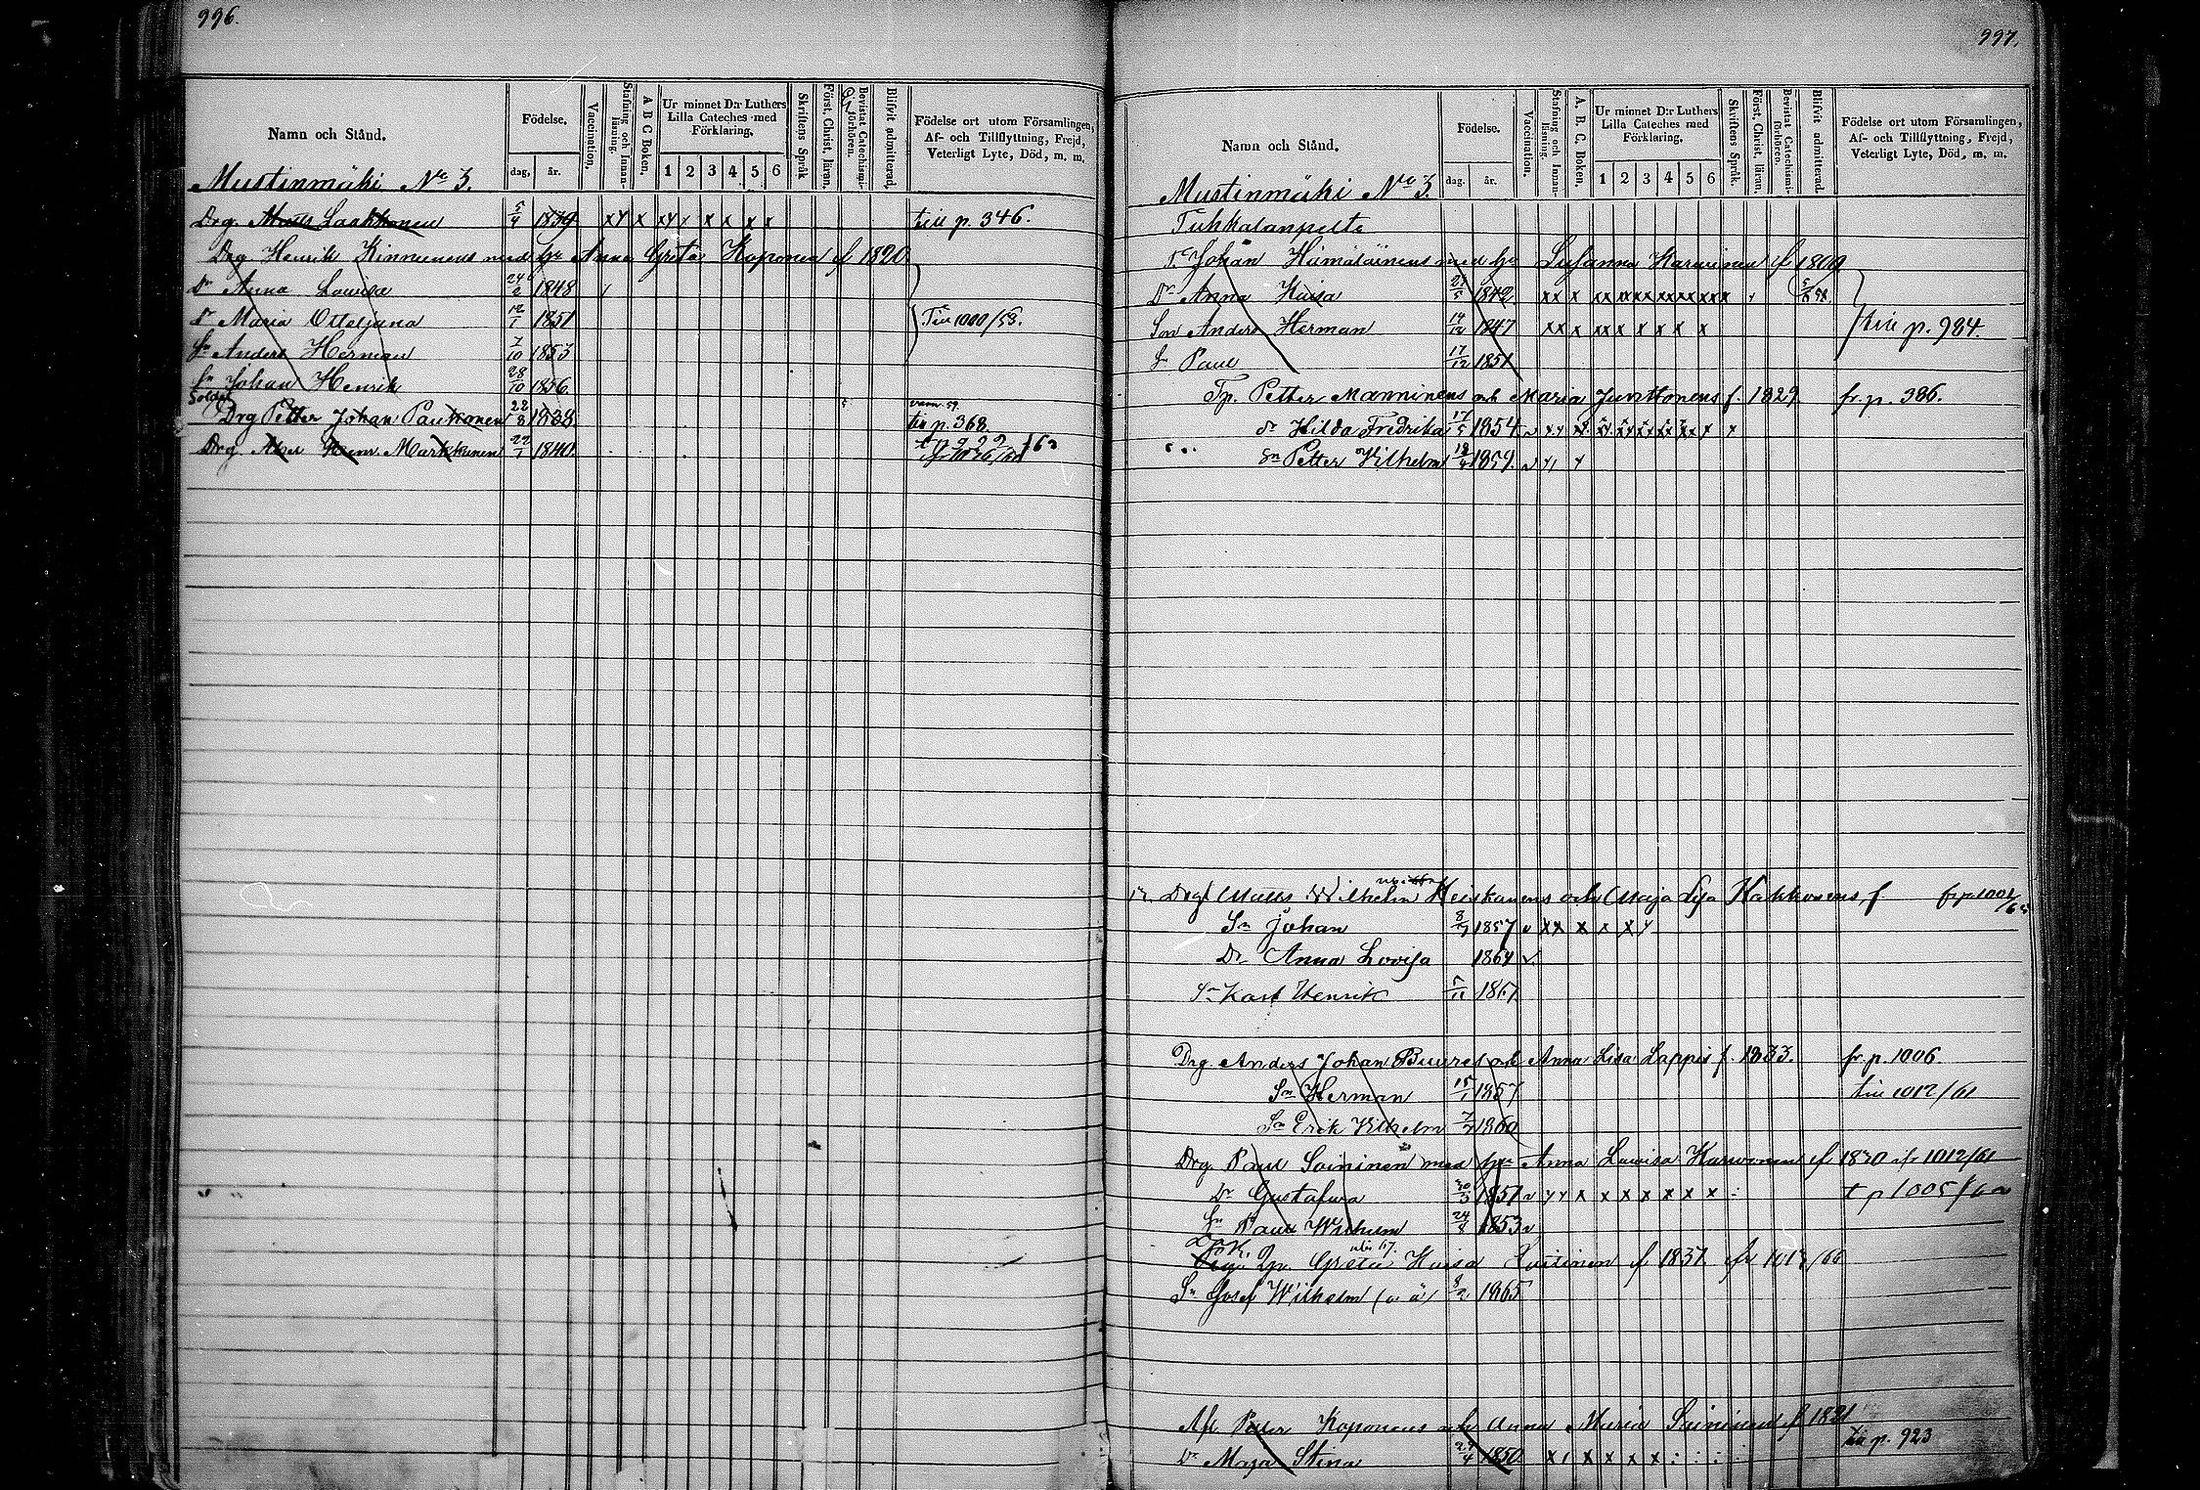 996.
Namn och Stånd.
Födelse.
dag, år.
Vaccination,
Stafning och Innan-läsning.
A B C Boken,
Ur minnet D:r Luthers Lilla Cateches med Förklaring,
1 2 3 4 5 6
Skriftens Språk
Först. Christ. läran,
Bevistat Catechismi-förhören.
Blifvit admitterad,
Födelse ort utom Församlingen, Af- och Tillflyttning, Frejd, Veterligt Lyte, Död, m. m.
Mustinmäki No 3.
Drg. Laakkonen 5/4 1839 till p. 346.
Drg Henrik Kinnunens med hu Anna Greta Koponen f 1820
Dr Anna Lovisa 1848
dr Maria Otteljana 12/1 1851 Till 1000/58.
Sn Anders Herman 7/10 1853
Sn Johan Henrik 28/10 1856
Soldat
Drg Petter Johan Paukkonen 22/8 1838 till p. 368
Drg Markkanen 1840
997.
Namn och Stånd.
Födelse.
dag. år.
Vaccination,
Stafning och Innan-läsning.
A. B. C. Boken,
Ur minnet D:r Luthers Lilla Cateches med Förklaring.
1 2 3 4 5 6
Skriftens Språk.
Först. Christ. läran.
Bevistat Catechismi-förhören.
Blifvit admitterad.
Födelse ort utom Församlingen, Af- och Tillflyttning, Frejd, Veterligt Lyte, Död, m. m.
Mustinmäki No 3.
Tuhkalanpelto
Johan Hämäläinens med hu Susanna Karvinen f 1809
Dr Anna Kaisa 1842
Son Anders Herman 14/12 1847 till p. 984.
Sn Paul 17/12 1851
Tp. Petter Manninens och Maria Juvettonens f. 1829 fr. p. 386.
dr Hilda Fredrika 17/5 1854
Sn Petter Vilhelm 1859
Drg Matts Wilhelm Heiskanens och Maja Lisa Hakkarains f.
Sn Johan 1857
Dr Anna Lovisa 1864
Sn Karl Henrik 5/11 1867
Drg. Anders Johan Buures och Anna Lisa Lappis f. 1833. fr. p. 1006.
Sn Herman 15/1 1857 till 1012/61
Sn Erik Vilhelm 1860
Drg. Paul Soininen med hu Anna Lovisa Karvonen f 1830 fr 1012/61
Dr Gustafwa 1851
Sn Paul Wilhelm 1853
Greta Kaisa f 1837
Sn Josef Wilhelm (o ä) 8/2 1865
Petter Koponens och Anna Maria Soininen f 1821
Dr Maja Stina 1850 till p. 923